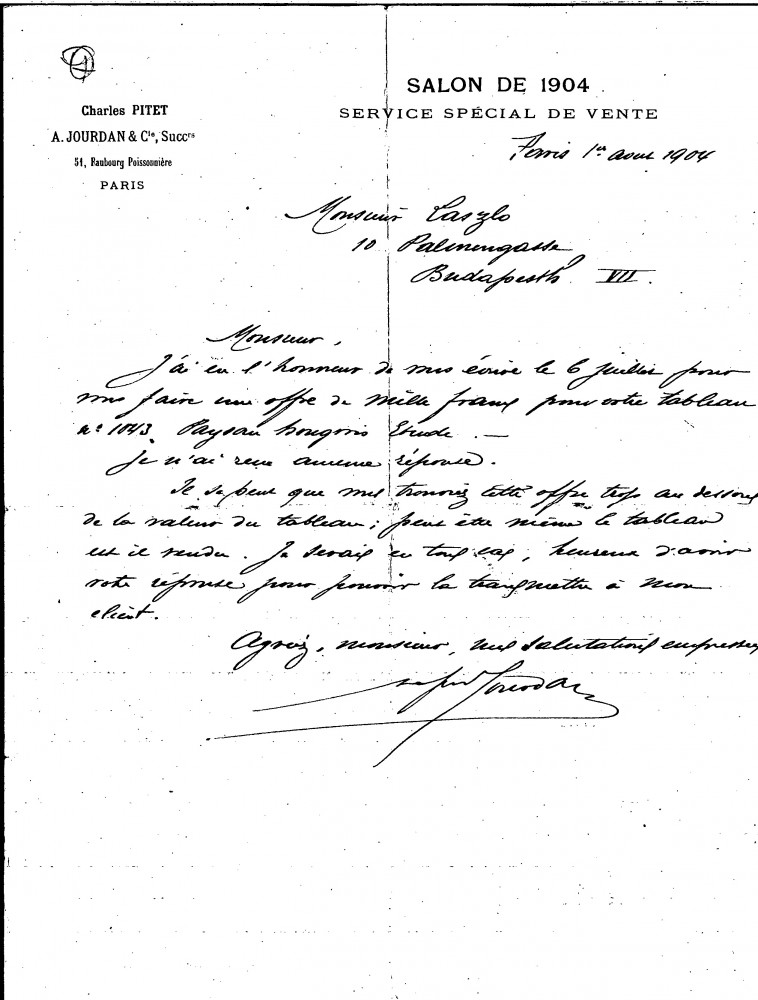 Charles PITET
A. JOURDAN & Cie, Succrs
51, Faubourg Poissonnière
PARIS
SALON DE 1904
SERVICE SPÉCIAL DE VENTE
Paris 1er aout 1904
Monsieur Laszlo
10 Palmengasse
Budapesth VII.
Monsieur,
J'ai eu l'honneur de vous écrire le 6 juillet pour
vous faire une offre de mille francs pour votre tableau
no 1043. Paysan hongrois Etude. —
Je n'ai recu aucune réponse.
Il se peut que vous trouviez cette offre trop au dessous
de la valeur du tableau; peut être même le tableau
est il vendu. Je serais en tous cas, heureux d'avoir
votre réponse pour pouvoir la transmettre à mon
client.
Agréez, monsieur, mes salutations empressées
Jourdan